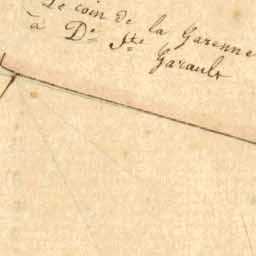 Le coin de la Garenne
à De. Ste.
Garault